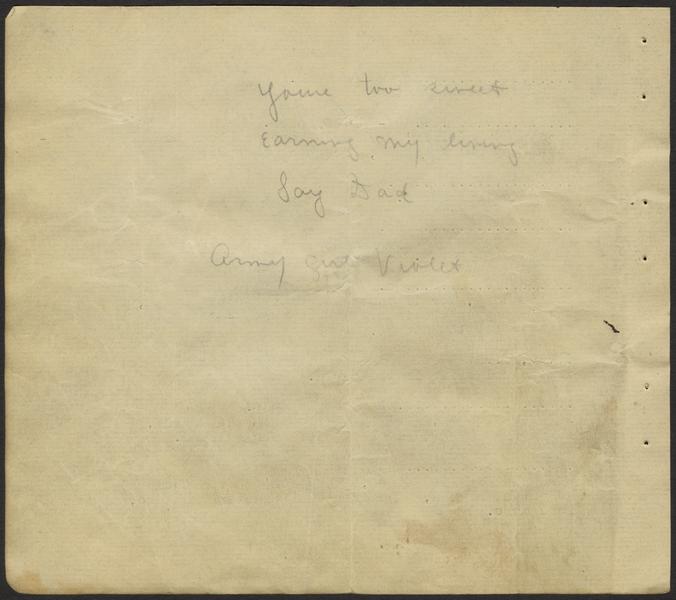 You're too sweet
Earning my living
Say Dad
Army girl Violet